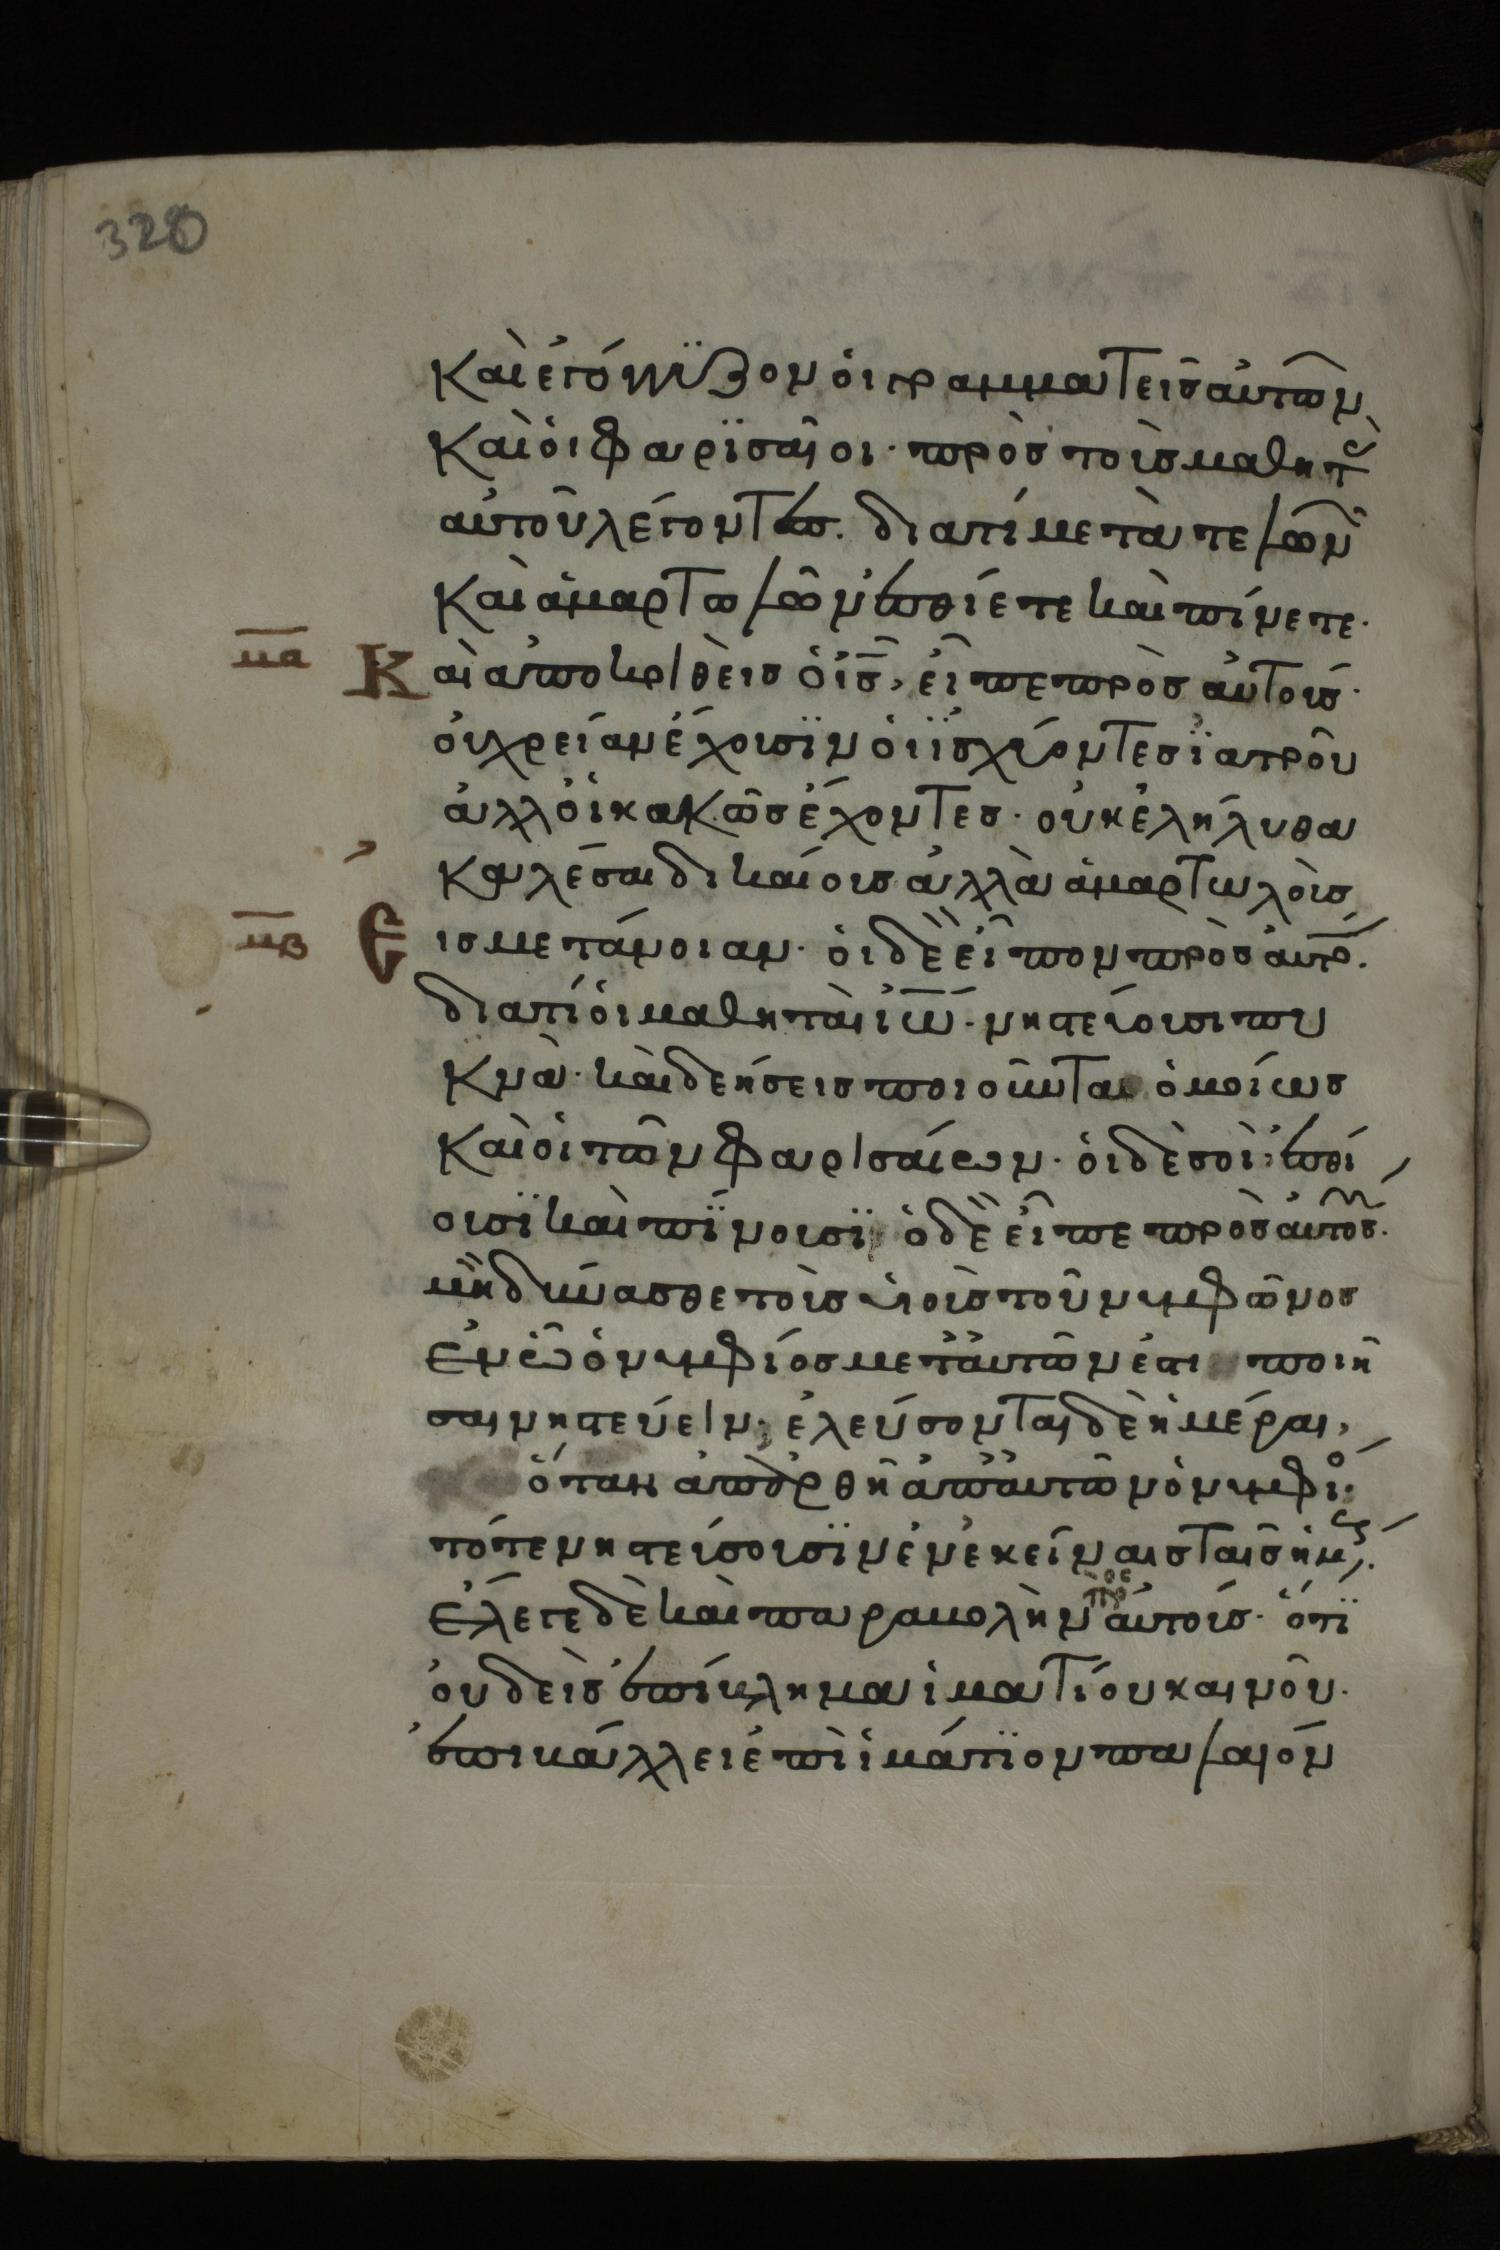 320
καὶ ἐγόγγϋζον ὁι γραμματεῖς ἀυτῶν
καὶ ὁι φαρϊσαῖοι· πρὸς τοὺς μαθητὰς
ἀυτοῦ λέγοντες. διατί μετὰ τελωνῶ
καὶ ἁμαρτωλῶν ἐσθίετε καὶ πίνετε·
μα Καὶ ἀποκριθεὶς ὁ ἰς, εἶπε πρὸς ἀυτούς·
ὀυ χρείαν ἔχουσϊν ὁι ϊσχύοντες ϊατροῦ
ἀλλ' ὁι κακῶς ἔχοντες· οὐκ ἐλήλυθα
καλέσαι δικαίους ἀλλὰ ἁμαρτωλοὺς
μβ Εις μετάνοιαν· ὁι δὲ εἶπον πρὸς ἀυτόν.
διατί ὁι μαθηταὶ ἰω· νηστεύουσι πυ
κνὰ· καὶ δεήσεις ποιοῦνται ὁμοίως
καὶ ὁι τῶν φαρισαίων· ὁι δὲ σοὶ ἐσθί
ουσϊ καὶ πϊνουσϊ ὁ δὲ εἶπε πρὸς ἀυτούς·
μὴ δύνασθε τοὺς υἱοὺς τοῦ νυμφῶνος
ἐν ὧ ὁ νυμφίος μετ' ἀυτῶν ἐστι ποιῆ
σαι νηστεύειν· ἐλεύσονται δὲ ἡμέραι,
ὅταν ἀπαρθῆ ἀπ' ἀυτῶν ὁ νυμφίος·
τότε νηστεύσουσϊν ἐν ἐκείναις ταῖς ἡμέραις.
ἔλεγε δὲ καὶ παραβολὴν πρὸς ἀυτούς· ὅτϊ
ὀυδεὶς ἐπίβλημα ἱματίου καινοῦ·
ἐπιβάλλει ἐπὶ ἱμάτϊον παλαιόν